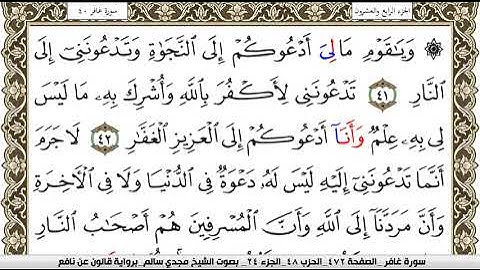 سورة غافر ٤٠
الجزء الرابع والعشرون
۞ وَيَٰقَوْمِ مَا لِيَ أَدْعُوكُمْ إِلَى النَّجَوٰةِ وَتَدْعُونَنِي إِلَى
النَّارِ ٤١ تَدْعُونَنِي لِأَكْفُرَ بِاللَّهِ وَأُشْرِكَ بِهِ مَا لَيْسَ
لِي بِهِ عِلْمٌ وَأَنَا أَدْعُوكُمْ إِلَى الْعَزِيزِ الْغَفَّٰرِ ٤٢ لَا جَرَمَ
أَنَّمَا تَدْعُونَنِي إِلَيْهِ لَيْسَ لَهُ دَعْوَةٌ فِي الدُّنْيَا وَلَا فِي الْأَخِرَةِ
وَأَنَّ مَرَدَّنَا إِلَى اللَّهِ وَأَنَّ الْمُسْرِفِينَ هُمْ أَصْحَٰبُ النَّارِ
سورة غافر_ الصفحة ٤٧٢_ الحزب ٤٨_ الجزء ٢٤_ بصوت الشيخ مجدي سالم_ برواية قالون عن نافع